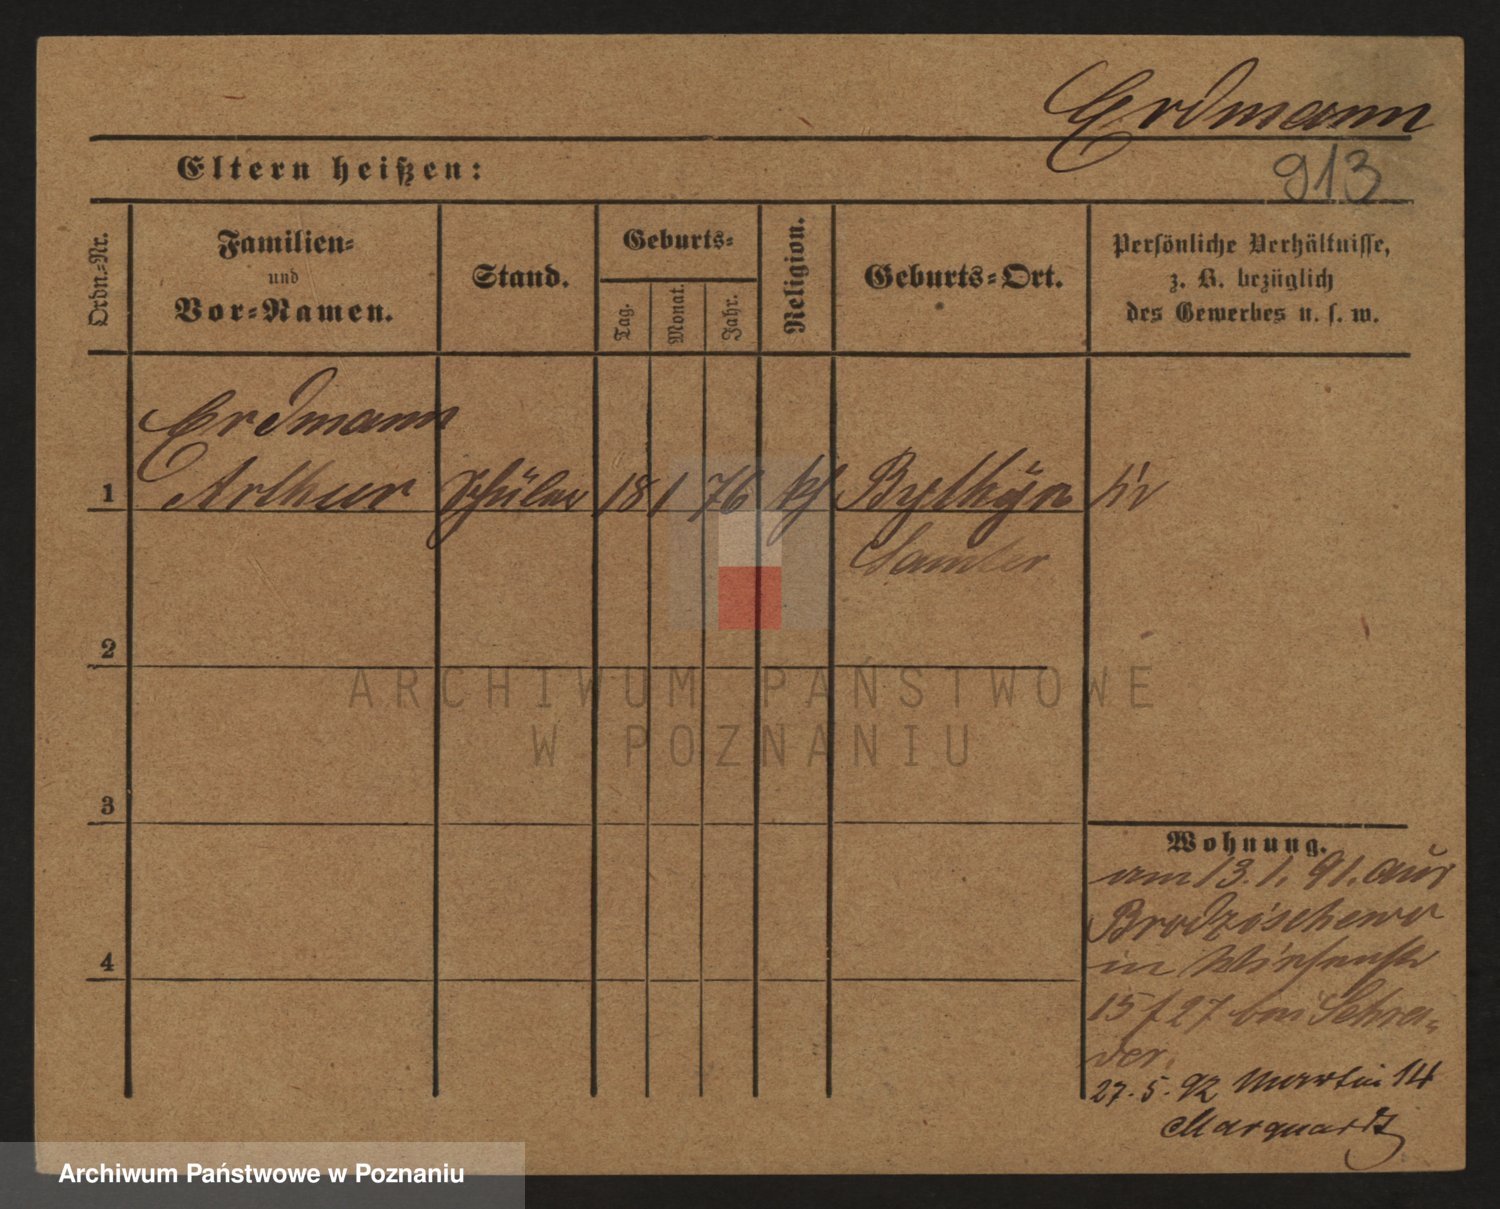 Erdmann
Eltern heißen:
913
Ordn.-Nr.
Familien-
und
Vor-Namen.
Stand.
Geburts-
Tag.
Monat.
Jahr.
Religion.
Geburts-Ort.
Persönliche Verhältnisse,
z. B. bezüglich
des Gewerbes u. s. w.
Erdmann
1 Arthur Schüler 18 1 76 Bythin
Samter
2
ARCHIWUM PAŃSTWOWE
W POZNANIU
3
4
Wohnung.
am 13. 1. 91. aus
Brodzischewo
in Wiesenstr
15 f 27 bei Schra-
der.
27. 5. 92 Martin 14
Marquardt
Archiwum Państwowe w Poznaniu